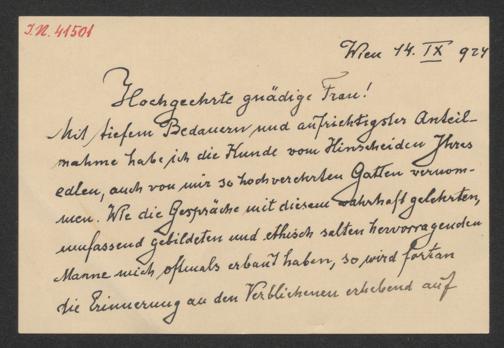 I.N. 41501
Wien 14. IX 924
Hochgeehrte gnädige Frau!
Mit tiefem Bedauern und aufrichtigster Anteil-
nahme habe ich die Kunde vom Hinscheiden Ihres
edlen, auch von mir so hochverehrten Gatten vernom-
men. Wie die Gespräche mit diesem wahrhaft gelehrten,
umfassend gebildeten und ethisch selten hervorragenden
Manne mich oftmals erbaut haben, so wird fortan
die Erinnerung an den Verblichenen erhebend auf